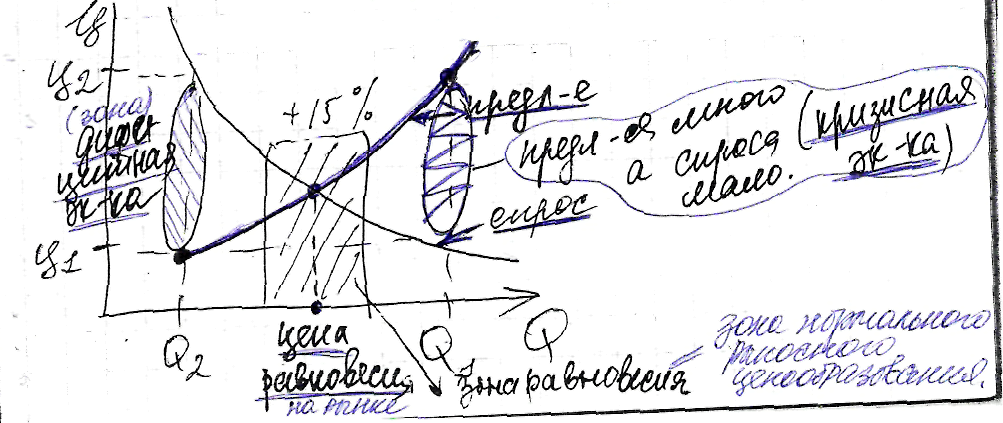 Ц
Ц2
(зона)
дифи-
цитная
эк-ка
Ц1
+15%
предл-е
предл-я много
а спроса (кризисная
мало. эк-ка)
спрос
Q2
цена
равновесия
на рынке
Q
Q
Зона равновесия
= зона нормального
рыночного
ценообразования.